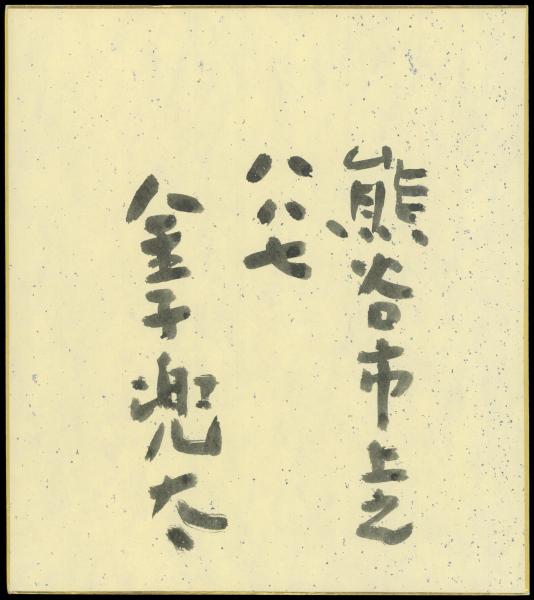 熊谷市上之
八八七
金子兜太